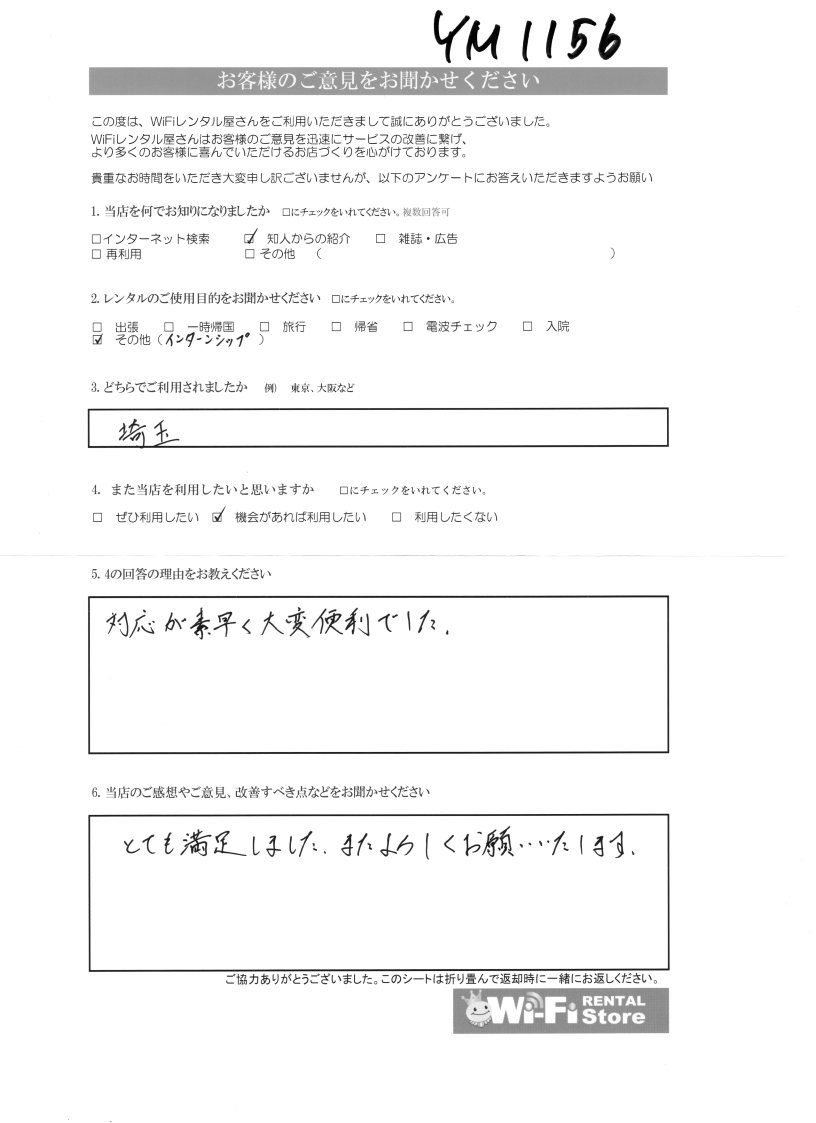 YM1156
お客様のご意見をお聞かせください
この度は、WiFiレンタル屋さんをご利用いただきまして誠にありがとうございました。
WiFiレンタル屋さんはお客様のご意見を迅速にサービスの改善に繋げ、
より多くのお客様に喜んでいただけるお店づくりを心がけております。
貴重なお時間をいただき大変申し訳ございませんが、以下のアンケートにお答えいただきますようお願い
1. 当店を何でお知りになりましたか □にチェックをいれてください。複数回答可
□インターネット検索 ☑ 知人からの紹介 □ 雑誌・広告
□ 再利用 □ その他 （ ）
2. レンタルのご使用目的をお聞かせください □にチェックをいれてください。
□ 出張 □ 一時帰国 □ 旅行 □ 帰省 □ 電波チェック □ 入院
☑ その他（インターンシップ）
3. どちらでご利用されましたか 例) 東京、大阪など
埼玉
4. また当店を利用したいと思いますか □にチェックをいれてください。
□ ぜひ利用したい ☑ 機会があれば利用したい □ 利用したくない
5. 4の回答の理由をお教えください
対応が素早く大変便利でした.
6. 当店のご感想やご意見、改善すべき点などをお聞かせください
とても満足しました. またよろしくお願いいたします.
ご協力ありがとうございました。このシートは折り畳んで返却時に一緒にお返しください。
Wi-Fi RENTAL Store